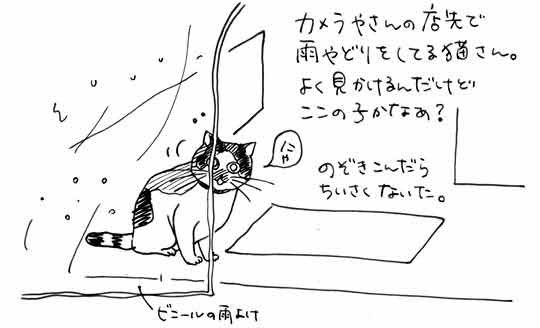 カメラやさんの店先で
雨やどりをしてる猫さん。
よく見かけるんだけど
ここの子かなあ？
にゃ
のぞきこんだら
ちいさくないた。
ビニールの雨よけ